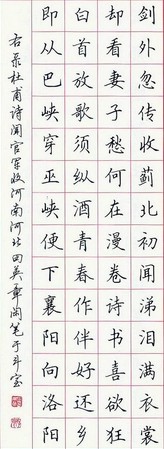 剑外忽传收蓟北初闻涕泪满衣裳
却看妻子愁何在漫卷诗书喜欲狂
白首放歌须纵酒青春作伴好还乡
即从巴峡穿巫峡便下襄阳向洛阳
右录杜甫诗闻官军收河南河北田英章闲笔于斗室